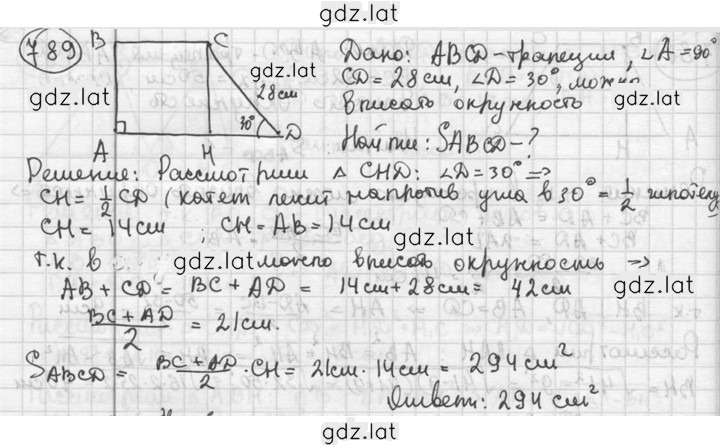 gdz.lat
789
B C
28см
30°
A H D
gdz.lat
Дано: ABCD-трапеция, ∠A=90°
CD=28см, ∠D=30°, можно
вписать окружность
Найти: SABCD-?
gdz.lat
gdz.lat
Решение: Рассмотрим △ CHD: ∠D=30° ⇒
CH=1/2 CD (катет лежит напротив угла в 30° = 1/2 гипотену
CH=14см ; CH=AB=14см
gdz.lat
т.к. в gdz.lat можно вписать окружность ⇒
AB + CD = BC + AD = 14см + 28см = 42см
gdz.lat
BC + AD / 2 = 21см.
SABCD = BC + AD / 2 · CH = 21см · 14см = 294 см²
Ответ: 294 см²
gdz.lat